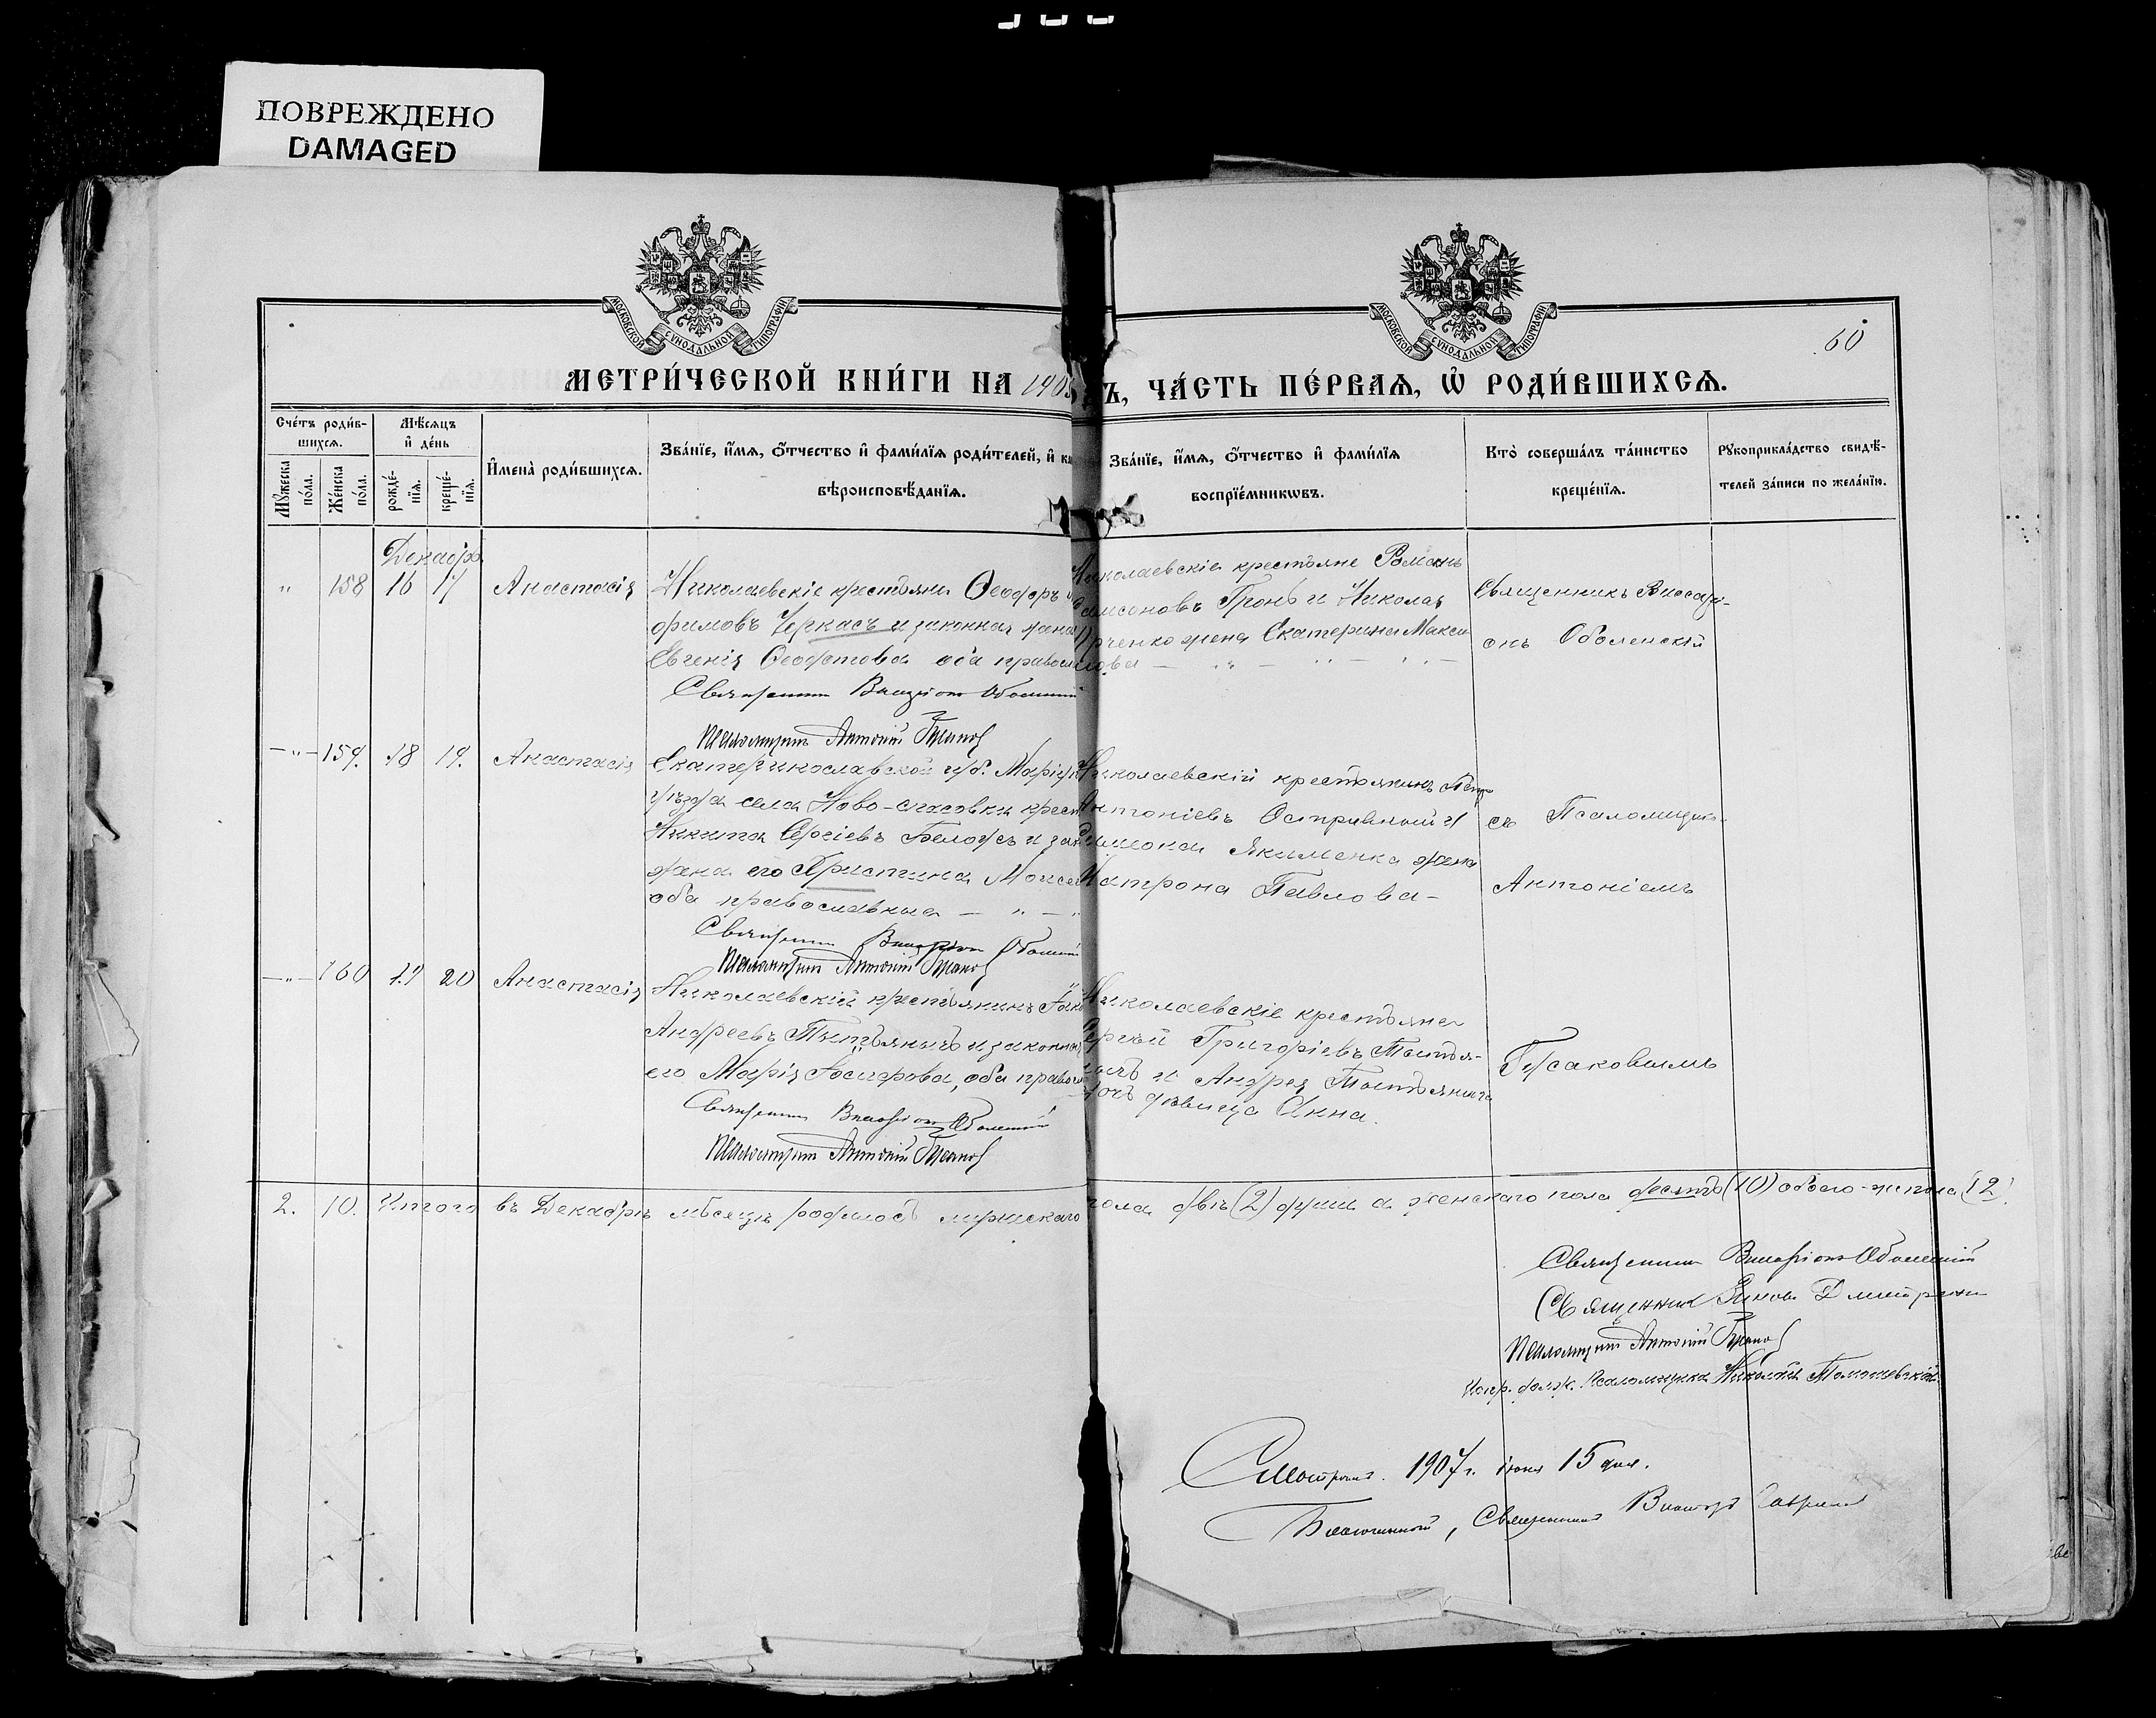 ПОВРЕЖДЕНО
DAMAGED
МОСКОВСКОЙ СѴНОДАЛЬНОЙ ТИПОГРАФІИ
МОСКОВСКОЙ СѴНОДАЛЬНОЙ ТИПОГРАФІИ
60
МЕТРИ́ЧЕСКОЙ КНИ́ГИ НА 190
Ъ, ЧА́СТЬ ПЕ́РВАѦ, Ѡ҆ РОДИ́ВШИХСѦ.
Сче́тъ роди́в-
шихсѧ.
Мꙋжеска по́ла.
Же́нска по́ла.
Мѣ́сѧцъ
и҆ де́нь
рожде́-
нїѧ.
креще́-
нїѧ.
И҆мена̀ роди́вшихсѧ.
Зва́нїе, и҆́мѧ, ѻ҆́тчество и҆ фами́лїѧ роди́телей, и҆
вѣроисповѣ́данїѧ.
Зва́нїе, и҆́мѧ, ѻ҆́тчество и҆ фами́лїѧ
воспрїе́мникѡвъ.
Кто̀ соверша́лъ та́инство
креще́нїѧ.
Рꙋкоприкла́дство свидѣ́-
телей за́писи по жела́нїю.
Декабрь
" 158 16 17 Анастасія
Николаевскіе крестьяне Ѳеодоръ
фимовъ Черкасъ и законная жена
Евгенія Ѳеофтова оба правосл
Священникъ Виссаріонъ Оболенскій
Псаломщикъ Антоній Гусаковъ
Николаевскіе крестьяне Романъ
Самсоновъ Гронь и Николая
жена Екатерина Макси
мова
Священникъ Виссарі-
онъ Оболенскій
-"- 159. 18 19. Анастасія
Екатеринославской губ. Маріуп
уѣзда села Ново-спасовки крест
Никита Сергіевъ Белоусъ и зак
жена его Христина Моисе
оба православные
Священникъ Виссаріонъ Оболенскій
Псаломщикъ Антоній Гусаковъ
Николаевскій крестьянинъ Петръ
Антоніевъ Остривный и
Симеона Якименка жена
Матрона Павлова
съ Псаломщико-
Антоніемъ
-"- 160 19 20 Анастасія
Николаевскій крестьянинъ Іак
Андреевъ Тытьянычъ и законная
его Марія Іосифова, оба правосл
Священникъ Виссаріонъ Оболенскій
Псаломщикъ Антоній Гусаковъ
Николаевскіе крестьяне
Сергѣй Григоріевъ Тытья-
нычъ и Андрея Тытьяныча
дочь дѣвица Анна.
Гусаковымъ
2. 10. Итого въ Декабрѣ мѣсяцѣ родилось мужескаго пола двѣ (2) души а женскаго пола десять (10) обоего-же пола (12)
Священникъ Виссаріонъ Оболенскій
Священникъ
Псаломщикъ Антоній Гусаковъ
Испр. долж. Псаломщика Николай
Смотрѣлъ. 1907 г. іюня 15 дня.
Благочинный, Священникъ Викторъ